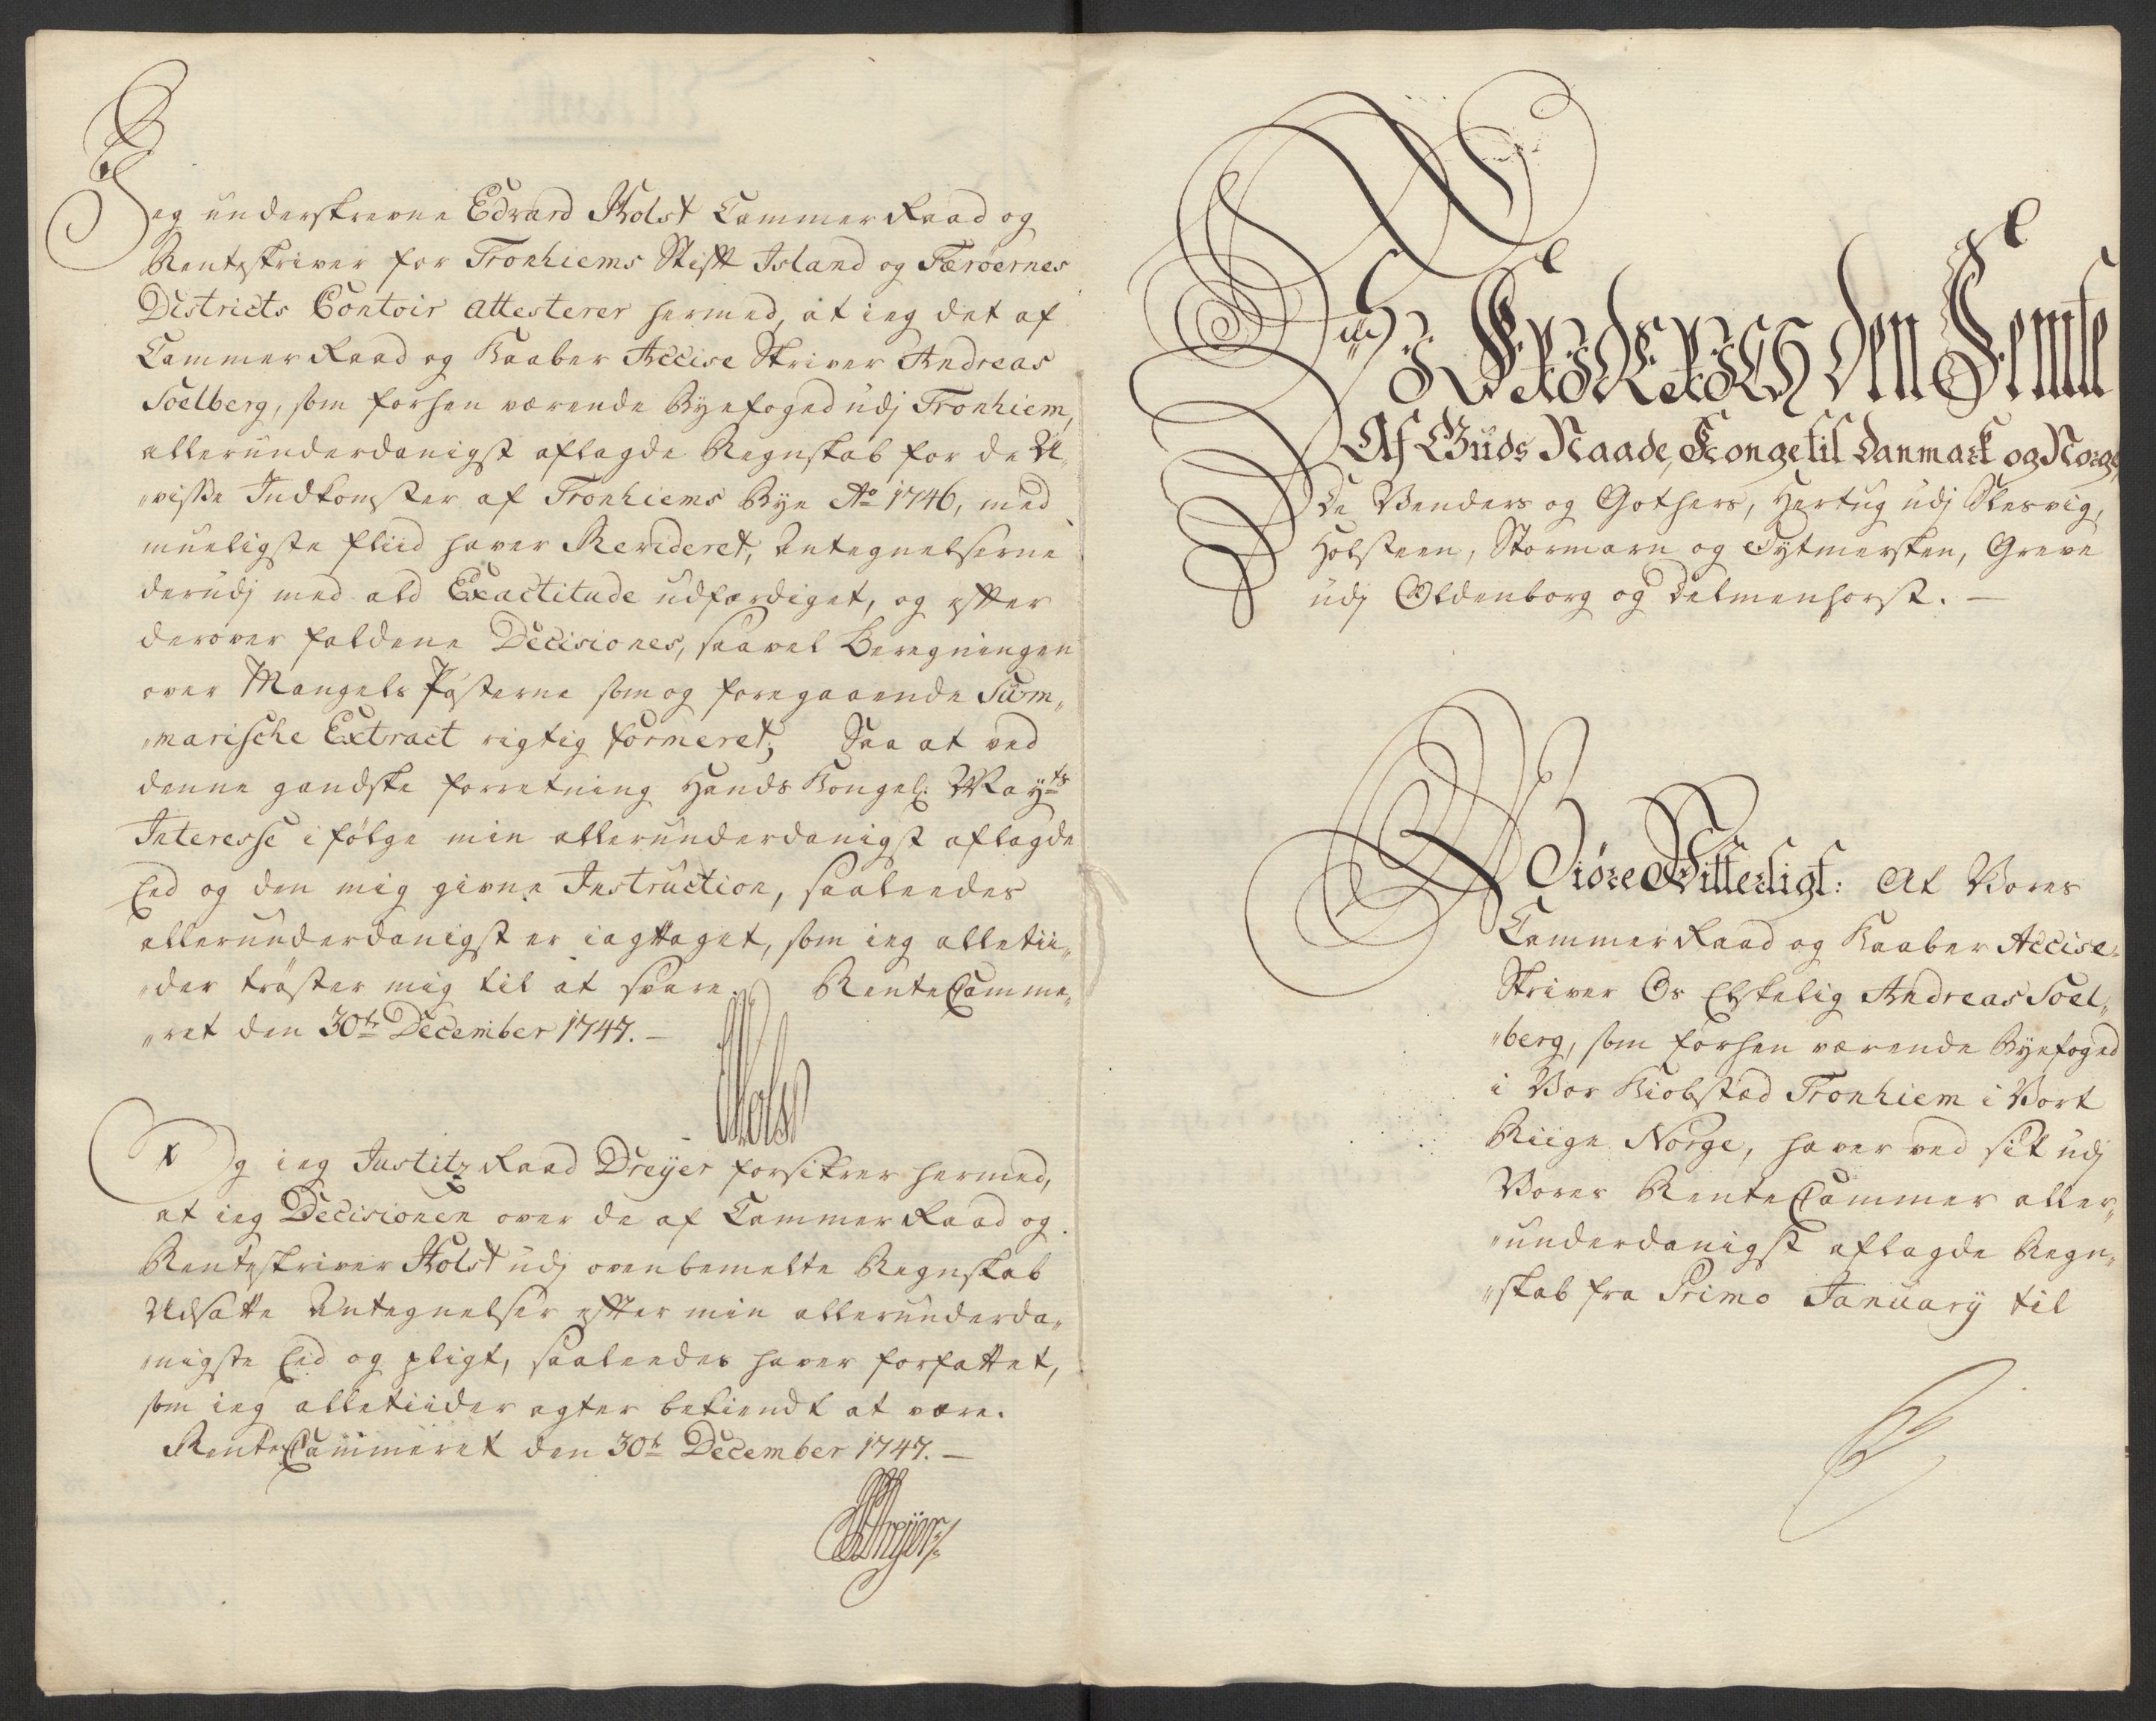 Jeg underskrevne Edvard Holst Cammer Raad og
Renteskriver for Tronhiems Stift Island og Færöernes
Districts Contoir attesterer hermed, at ieg det af
Cammer Raad og Kaaber Accise Skriver Andreas
Soelberg, som forhen værende Byefoged udj Tronhiem,
allerunderdanigst aflagde Regnskab for de U„
„visse Indkomster af Tronhiems Bye Ao 1746, med
mueligste fliid haver Revideret, Antegnelserne
derudj med ald Exactitude udfærdiget, og efter
derover faldene Decisiones, saavel Beregningen
over Mangels Posterne som og foregaaende Sum„
„marische Extract rigtig formeret; Saa at ved
denne gandske forretning Hands Kongel: Mayts
Interesse i følge min allerunderdanigst aflagde
Eed og den mig givne Instruction, saaleedes
allerunderdanigst er iagttaget, som ieg alletii„
„der trøster mig til at svare. RenteCamme„
„ret den 30te December 1747. —
EHolst
Og ieg Justitz Raad Dreÿer forsikrer hermed,
at ieg Decisionen over de af Cammer Raad og
Renteskriver Holst udj ovenbemelte Regnskab
Udsatte Antegnelser efter min allerunderda„
„nigste Eed og pligt, saaleedes haver forfattet,
som ieg alletiider agter bekiendt at være.
RenteCammeret den 30te December 1747. —
Dreÿer
Wii Friderich den Femte
Af Guds Naade, Konge til Danmark og Norge,
De Venders og Gothers, Hertug udj Slesvig,
Holsteen, Stormarn og Dytmersken, Greve
udj Oldenborg og Delmenhorst. —
Giøre Vitterligt: At Vores
Cammer Raad og Kaaber Accise„
Skriver Os Elskelig Andreas Soel„
„berg, som forhen værende Byefoged
i Vor Kiøbstæd Tronhiem i Vort
Riige Norge, haver ved sit udj
Vores RenteCammer aller„
„underdanigst aflagde Regn„
„skab fra Primo Januarÿ til